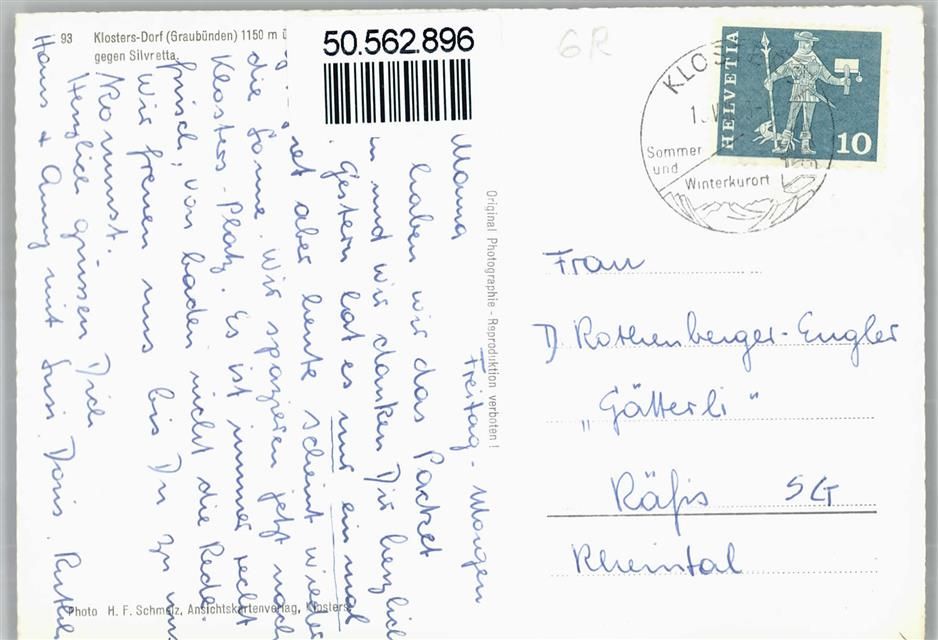 93 Klosters-Dorf (Graubünden) 1150 m ü
gegen Silvretta.
50.562.896
GR
KLOSTERS
Sommer
und
Winterkurort
HELVETIA
10
Freitag-Morgen
Mama
haben wir das Packet
und wir danken Dir herzlich
Gestern hat es nur einmal
aber heute scheint wieder
die Sonne. Wir spazieren jetzt nach
Klosters-Platz. Es ist immer recht
frisch, von baden nicht die Rede.
Wir freuen uns bis Du zu uns
kommst.
Herzlich grüssen Dich
Hans + Anny mit Susi. Doris. Ruthli
Original Photographie - Reproduktion verboten!
Frau
D. Rothenberger-Engler
„Gätterli"
Räfis SG
Rheintal
Photo H. F. Schmelz, Ansichtskartenverlag, Klosters